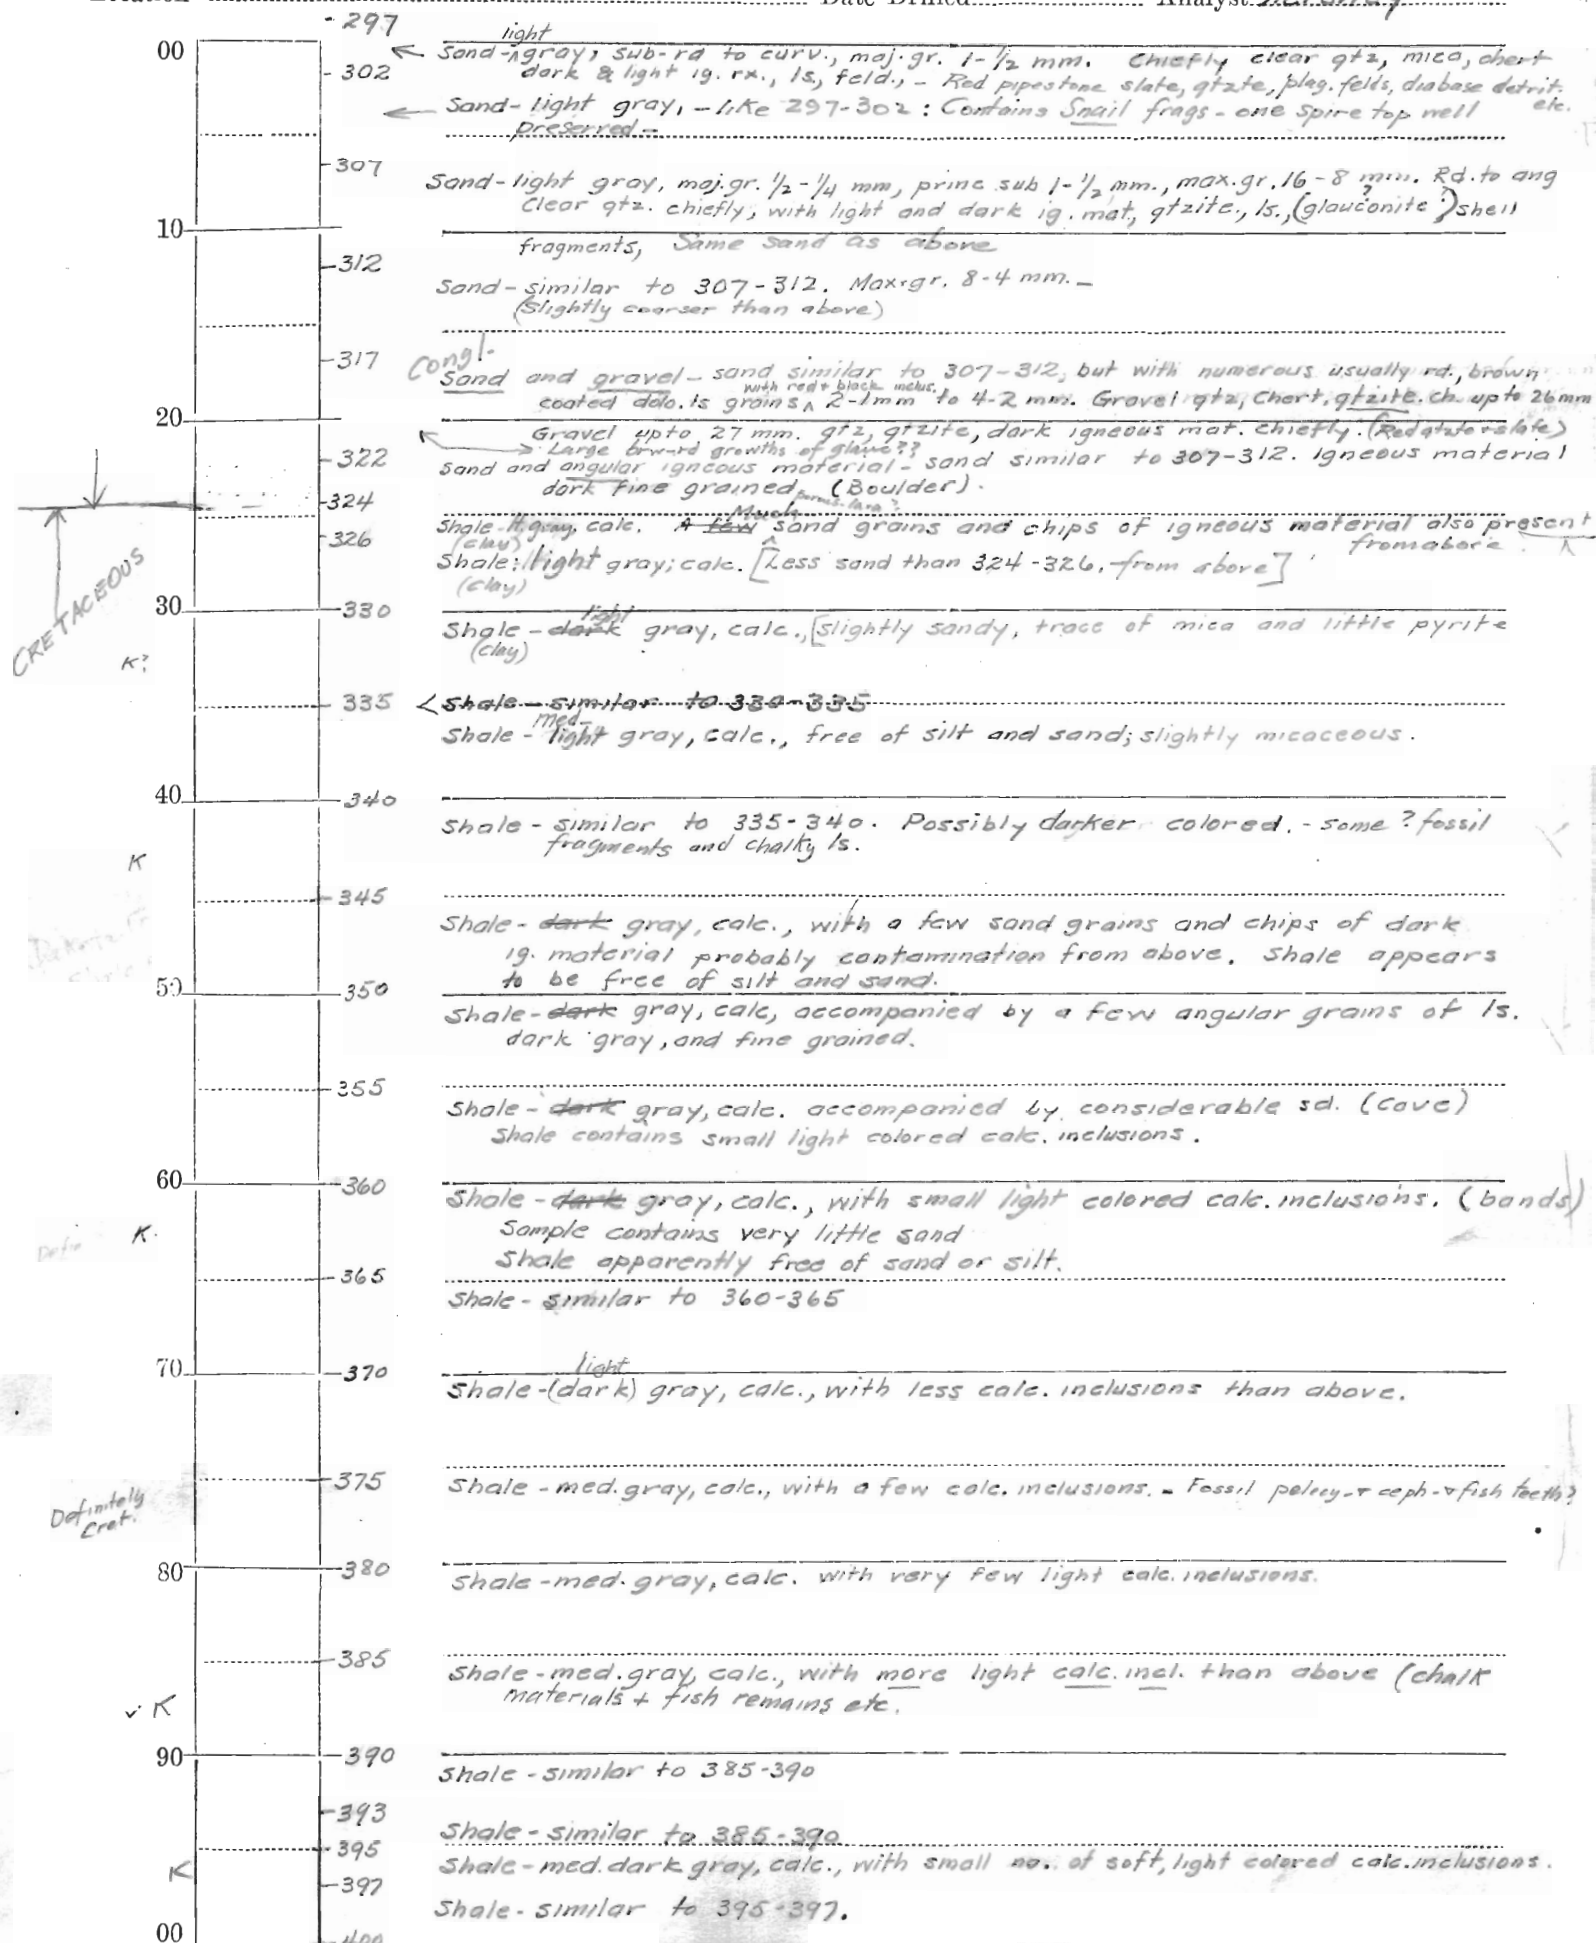 Location Date Drilled Analyst
297
00
light
Sand - gray, sub-rd to curv., maj. gr. 1-1/2 mm. Chiefly clear qtz, mica, chert
302
dark & light ig. rx., ls, feld., - Red pipestone slate, qtzte, plag. felds, diabase detrit. etc.
Sand - light gray, - like 297-302 : Contains Snail frags - one spire top well
preserved -
307
Sand - light gray, maj. gr. 1/2-1/4 mm, princ sub 1-1/2 mm., max. gr. 16-8 mm. Rd. to ang
Clear qtz. chiefly, with light and dark ig. mat, qtzite., ls., (glauconite ?) shell
10
fragments, Same sand as above
312
Sand - similar to 307-312. Max. gr. 8-4 mm. -
(Slightly coarser than above)
317
Congl-
Sand and gravel - sand similar to 307-312, but with numerous usually rd., brown
with red + black inclus.
coated dolo. ls grains, 2-1mm to 4-2 mm. Gravel qtz, Chert, qtzite. ch. up to 26mm
20
Gravel upto 27 mm. qtz, qtzite, dark igneous mat. chiefly. (Red qtzte + slate)
Large growths of ??
322
Sand and angular igneous material - sand similar to 307-312. Igneous material
dark fine grained (Boulder).
324
Much
Shale - lt. gray, calc. A few sand grains and chips of igneous material also present
(clay)
from above
326
Shale: light gray; calc. [Less sand than 324-326, from above]
(clay)
CRETACEOUS
30
330
light
Shale - dark gray, calc., [slightly sandy, trace of mica and little pyrite
(clay)
K?
335
Shale - similar to 330-335
med-
Shale - light gray, calc., free of silt and sand; slightly micaceous.
40
340
Shale - similar to 335-340. Possibly darker colored. - some ? fossil
fragments and chalky ls.
K
345
Shale - dark gray, calc., with a few sand grains and chips of dark
ig. material probably contamination from above. Shale appears
to be free of silt and sand.
50
350
Shale - dark gray, calc, accompanied by a few angular grains of ls.
dark gray, and fine grained.
355
Shale - dark gray, calc. accompanied by considerable sd. (Cave)
Shale contains small light colored calc. inclusions.
60
360
Shale - dark gray, calc., with small light colored calc. inclusions. (bands)
K.
Sample contains very little sand
Shale apparently free of sand or silt.
365
Shale - similar to 360-365
70
370
light
Shale - (dark) gray, calc., with less calc. inclusions than above.
375
Shale - med. gray, calc., with a few calc. inclusions. - Fossil pelecy- + ceph- + fish teeth?
Definitely
Cret.
80
380
Shale - med. gray, calc. with very few light calc. inclusions.
385
Shale - med. gray, calc., with more light calc. incl. than above (chalk
materials + fish remains etc.
K
90
390
Shale - similar to 385-390
393
Shale - similar to 385-390
395
Shale - med. dark gray, calc., with small no. of soft, light colored calc. inclusions.
K
397
Shale - similar to 395-397.
00
400